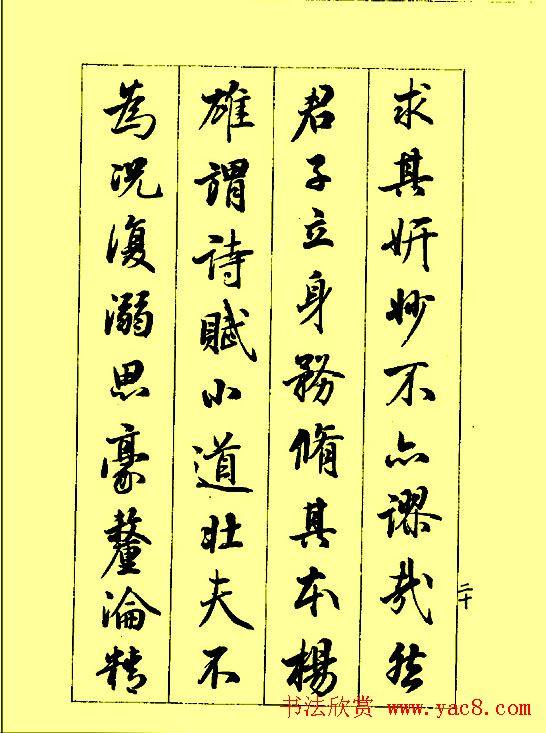 求其妍妙不亦謬哉然
君子立身務脩其本楊
雄謂詩賦小道壯夫不
為况復溺思豪釐淪精
二十
书法欣赏 www.yac8.com